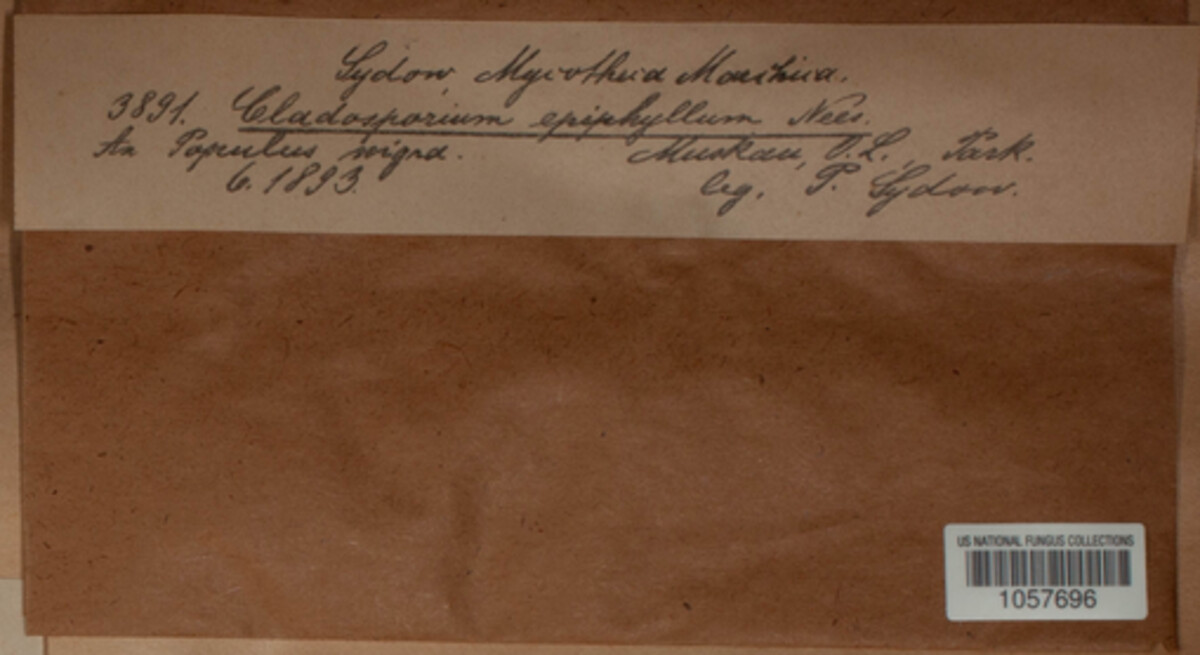 Sydow, Mycotheca Marchica.
3891. Cladosporium epiphyllum Nees.
An Populus nigra. Muskau, O.L., Park.
6. 1893. leg. P. Sydow.
US NATIONAL FUNGUS COLLECTIONS
1057696